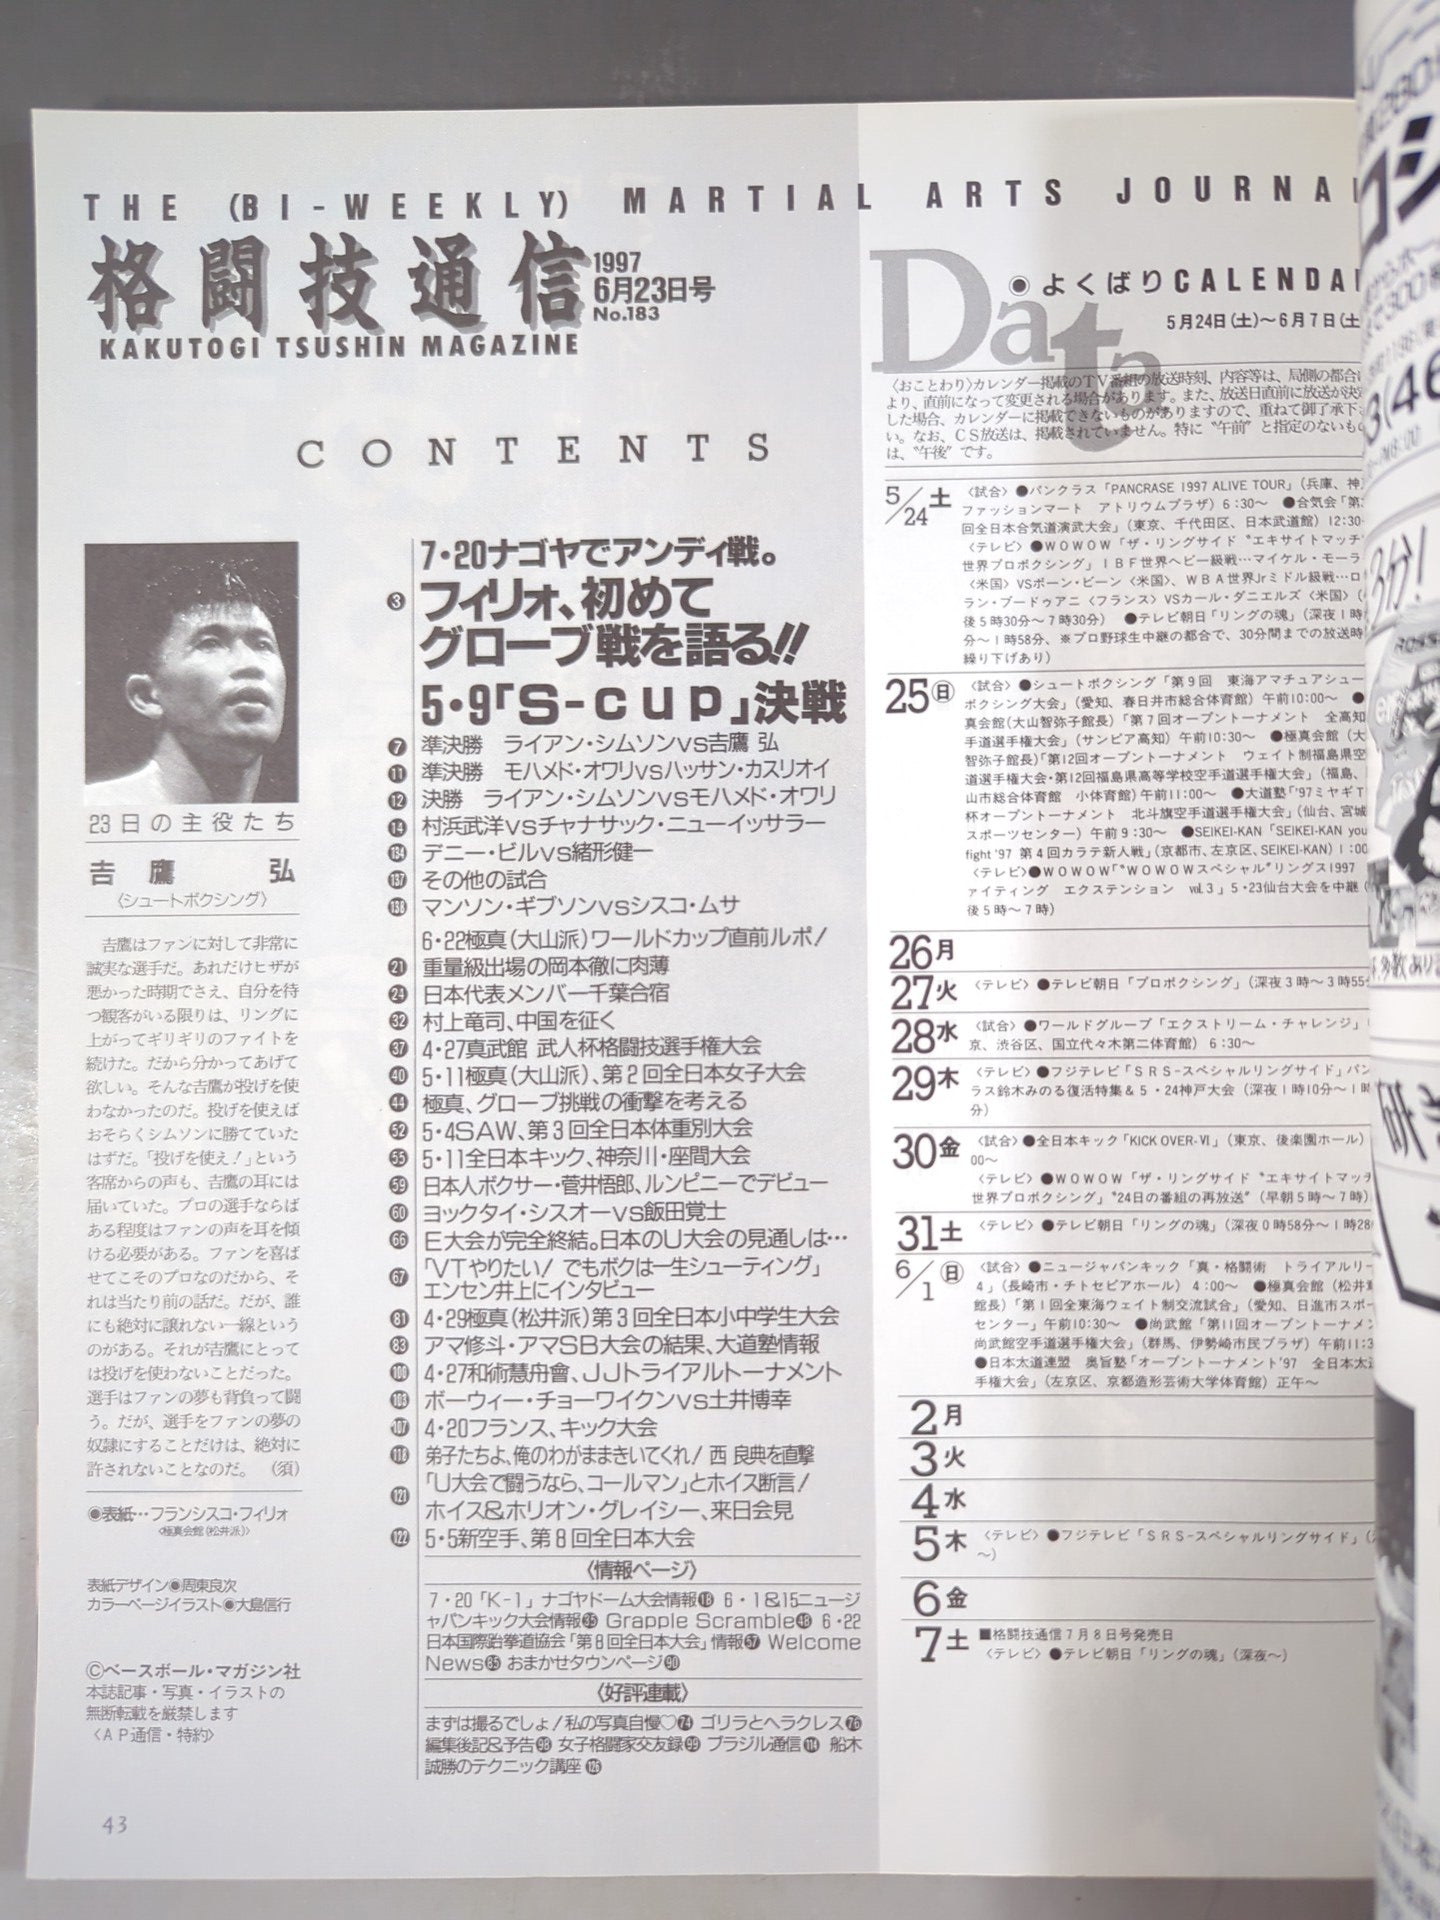 THE (BI-WEEKLY) MARTIAL ARTS JOURNA
格闘技通信
1997
6月23日号
No.183
KAKUTOGI TSUSHIN MAGAZINE
CONTENTS
23日の主役たち
吉鷹 弘
〈シュートボクシング〉
吉鷹はファンに対して非常に
誠実な選手だ。あれだけヒザが
悪かった時期でさえ、自分を待
つ観客がいる限りは、リングに
上がってギリギリのファイトを
続けた。だから分かってあげて
欲しい。そんな吉鷹が投げを使
わなかったのだ。投げを使えば
おそらくシムソンに勝てていた
はずだ。「投げを使え!」という
客席からの声も、吉鷹の耳には
届いていた。プロの選手ならば
ある程度はファンの声を耳を傾
ける必要がある。ファンを喜ば
せてこそのプロなのだから、そ
れは当たり前の話だ。だが、誰
にも絶対に譲れない一線という
のがある。それが吉鷹にとって
は投げを使わないことだった。
選手はファンの夢も背負って闘
う。だが、選手をファンの夢の
奴隷にすることだけは、絶対に
許されないことなのだ。 (須)
◉表紙…フランシスコ・フィリォ
〈極真会館(松井派)〉
表紙デザイン◉周東良次
カラーページイラスト◉大島信行
©ベースボール・マガジン社
本誌記事・写真・イラストの
無断転載を厳禁します
〈AP通信・特約〉
43
7・20ナゴヤでアンディ戦。
3 フィリォ、初めて
グローブ戦を語る!!
5・9「S-cup」決戦
7 準決勝 ライアン・シムソンVS吉鷹 弘
11 準決勝 モハメド・オワリVSハッサン・カスリオイ
12 決勝 ライアン・シムソンVSモハメド・オワリ
14 村浜武洋VSチャナサック・ニューイッサラー
134 デニー・ビルVS緒形健一
137 その他の試合
138 マンソン・ギブソンVSシスコ・ムサ
6・22極真(大山派)ワールドカップ直前ルポ!
21 重量級出場の岡本徹に肉薄
24 日本代表メンバー千葉合宿
32 村上竜司、中国を征く
37 4・27真武館 武人杯格闘技選手権大会
40 5・11極真(大山派)、第2回全日本女子大会
44 極真、グローブ挑戦の衝撃を考える
52 5・4SAW、第3回全日本体重別大会
55 5・11全日本キック、神奈川・座間大会
59 日本人ボクサー・菅井悟郎、ルンピニーでデビュー
60 ヨックタイ・シスオーVS飯田覚士
66 E大会が完全終結。日本のU大会の見通しは…
67 「VTやりたい! でもボクは一生シューティング」
エンセン井上にインタビュー
81 4・29極真(松井派)第3回全日本小中学生大会
83 アマ修斗・アマSB大会の結果、大道塾情報
100 4・27和術慧舟會、JJトライアルトーナメント
103 ボーウィー・チョーワイクンVS土井博幸
107 4・20フランス、キック大会
108 弟子たちよ、俺のわがままきいてくれ! 西 良典を直撃
121 「U大会で闘うなら、コールマン」とホイス断言!
ホイス&ホリオン・グレイシー、来日会見
122 5・5新空手、第8回全日本大会
〈情報ページ〉
7・20「K-1」ナゴヤドーム大会情報18 6・1&15ニュージ
ャパンキック大会情報35 Grapple Scramble48 6・22
日本国際跆拳道協会「第8回全日本大会」情報57 Welcome
News85 おまかせタウンページ90
〈好評連載〉
まずは撮るでしょ!私の写真自慢♡74 ゴリラとヘラクレス76
編集後記&予告98 女子格闘家交友録99 ブラジル通信114 船木
誠勝のテクニック講座126
Data
◉よくばりCALENDA
5月24日(土)〜6月7日(土
〈おことわり〉カレンダー掲載のTV番組の放送時刻、内容等は、局側の都合に
より、直前になって変更される場合があります。また、放送日直前に放送が決定
した場合、カレンダーに掲載できないものがありますので、重ねて御了承下さ
い。なお、CS放送は、掲載されていません。特に〝午前〟と指定のないもの
は、〝午後〟です。
5/24 土 〈試合〉●パンクラス「PANCRASE 1997 ALIVE TOUR」(兵庫、神
ファッションマート アトリウムプラザ) 6:30〜 ●合気会「第
回全日本合気道演武大会」(東京、千代田区、日本武道館) 12:30
〈テレビ〉●WOWOW「ザ・リングサイド〝エキサイトマッチ
世界プロボクシング」IBF世界ヘビー級戦…マイケル・モーラ
〈米国〉VSボーン・ビーン〈米国〉、WBA世界Jrミドル級戦…ロ
ラン・ブードゥアニ〈フランス〉VSカール・ダニエルズ〈米国〉(
後5時30分〜7時30分) ●テレビ朝日「リングの魂」(深夜1時
分〜1時58分、※プロ野球生中継の都合で、30分間までの放送時
繰り下げあり)
25 日 〈試合〉●シュートボクシング「第9回 東海アマチュアシュー
ボクシング大会」(愛知、春日井市総合体育館) 午前10:00〜 ●
真会館(大山智弥子館長)「第7回オープントーナメント 全高知
手道選手権大会」(サンピア高知) 午前10:30〜 ●極真会館 (大
智弥子館長)「第12回オープントーナメント ウェイト制福島県空
道選手権大会・第12回福島県高等学校空手道選手権大会」(福島、
山市総合体育館 小体育館)午前11:00〜 ●大道塾「'97ミヤギT
杯オープントーナメント 北斗旗空手道選手権大会」(仙台、宮城
スポーツセンター) 午前9:30〜 ●SEIKEI-KAN「SEIKEI-KAN you
fight '97 第4回カラテ新人戦」(京都市、左京区、SEIKEI-KAN) 1:00
〈テレビ〉●WOWOW「〝WOWOWスペシャル〟リングス1997
ァイティング エクステンション vol.3」5・23仙台大会を中継(
後5時〜7時)
26 月
27 火 〈テレビ〉●テレビ朝日「プロボクシング」(深夜3時〜3時55
28 水 〈試合〉●ワールドグループ「エクストリーム・チャレンジ」
京、渋谷区、国立代々木第二体育館) 6:30〜
29 木 〈テレビ〉●フジテレビ「SRS-スペシャルリングサイド」パン
ラス鈴木みのる復活特集&5・24神戸大会 (深夜1時10分〜1時
分)
30 金 〈試合〉●全日本キック「KICK OVER-VI」(東京、後楽園ホール)
00〜
〈テレビ〉●WOWOW「ザ・リングサイド〝エキサイトマッチ
世界プロボクシング」〝24日の番組の再放送〟(早朝5時〜7時)
31 土 〈テレビ〉●テレビ朝日「リングの魂」(深夜0時58分〜1時28
6/1 日 〈試合〉●ニュージャパンキック「真・格闘術 トライアルリー
4」(長崎市・チトセピアホール) 4:00〜 ●極真会館(松井
館長)「第1回全東海ウェイト制交流試合」(愛知、日進市スポー
センター)午前10:30〜 ●尚武館「第11回オープントーナメン
尚武館空手道選手権大会」(群馬、伊勢崎市民プラザ) 午前11:3
●日本太道連盟 奥旨塾「オープントーナメント'97 全日本太
手権大会」(左京区、京都造形芸術大学体育館) 正午〜
2 月
3 火
4 水
5 木 〈テレビ〉●フジテレビ「SRS-スペシャルリングサイド」(
〜)
6 金
7 土 ■格闘技通信7月8日号発売日
〈テレビ〉●テレビ朝日「リングの魂」(深夜〜)